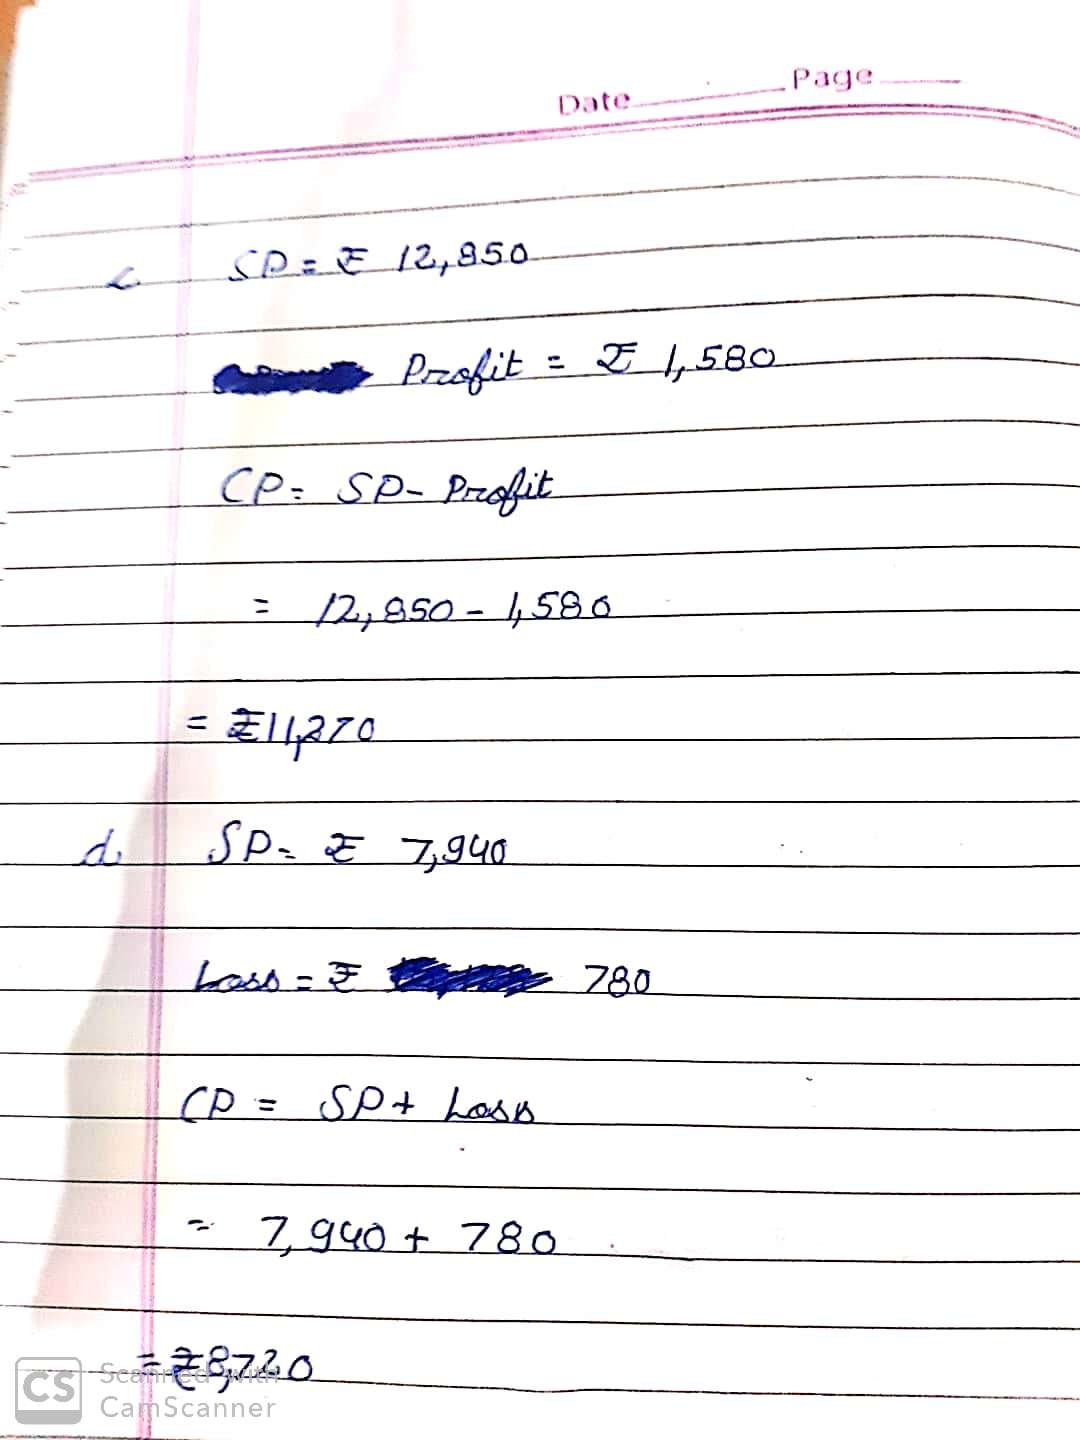 Date Page
c SP = ₹ 12,850
Profit = ₹ 1,580
CP = SP - Profit
= 12,850 - 1,580
= ₹11,270
d. SP = ₹ 7,940
Loss = ₹ 780
CP = SP + Loss
= 7,940 + 780
= ₹8,720
CS Scanned with
CamScanner